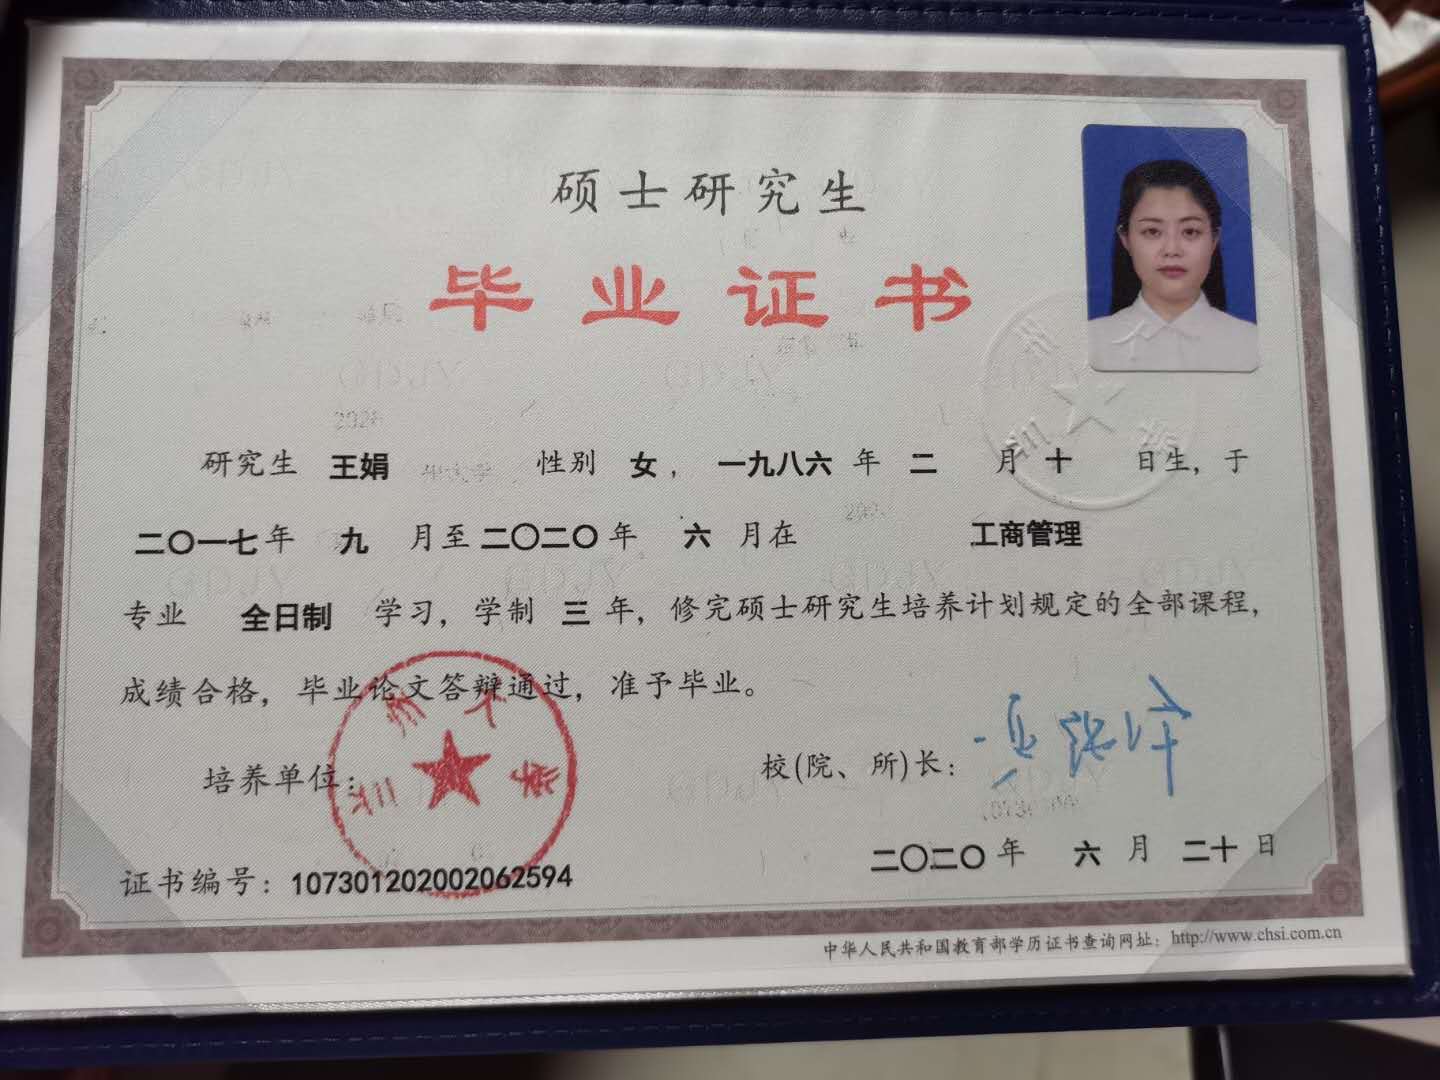 硕士研究生
毕业证书
研究生 王娟 性别 女，一九八六 年 二 月 十 日生，于
二〇一七年 九 月至 二〇二〇 年 六 月在 工商管理
专业 全日制 学习，学制 三 年，修完硕士研究生培养计划规定的全部课程，
成绩合格，毕业论文答辩通过，准予毕业。
培养单位：
兰州大学
校(院、所)长：
二〇二〇 年 六 月 二十 日
证书编号：107301202002062594
中华人民共和国教育部学历证书查询网址：http://www.chsi.com.cn